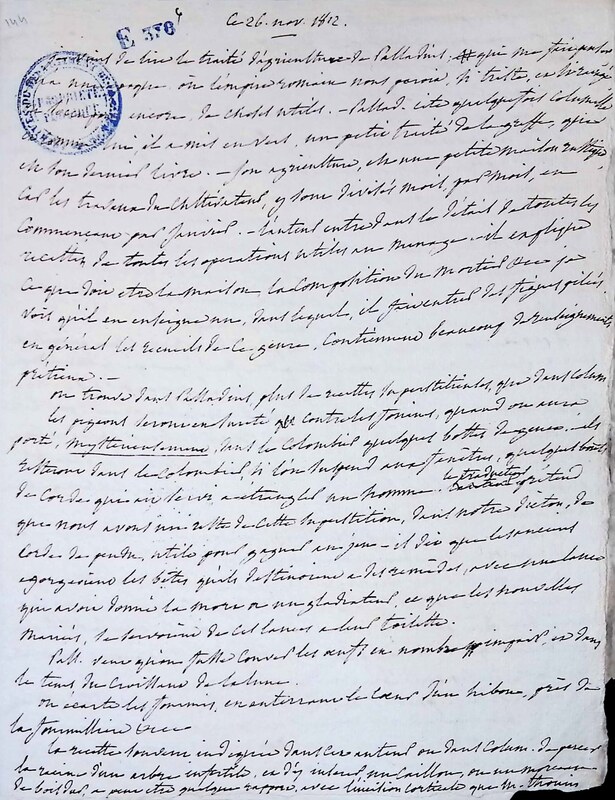 144
E 378 4
ce 26. nov. 1812.
de lire le traité d'agriculture de Palladius, que
où l'empire romain nous paroit, si triste,
encore, de choses utiles. - Pallad. cite quelquefois columelle
comme lui, il a mis en vers, un petit traité de la greffe, que
est son dernier livre. - son agriculture, est une petite maison rustique
car les travaux du cultivateur, y sont divisés mois, par mois, en
commençant par janvier. - l'auteur entre dans le détail de toutes les
recettes, de toutes les operations utiles au menage. - il explique
ce que doit etre la maison, la composition du mortier &c - je
vois qu'il en enseigne un, dans lequel, il fait entrer des figues pilées
en général les recueils de ce genre, contiennent beaucoup de renseignements
on trouve dans Palladius, plus de recettes superstitieuses, que dans Colum.
les pigeons seront en sureté contre les fouines, quand on aura
porté, mysterieusement, dans le colombier quelques bottes de genet. - ils
resteront dans le colombier, si l'on suspend aux fenêtres, quelques bouts
de cordes qui auront etranglé un homme. le traducteur prétend
que nous avons un reste de cette superstition, dans notre dicton, de
corde de pendu, utile pour gagner au jeu - il dit que les anciens
egorgeoient les bêtes qu'ils destinoient a des remèdes, avec une lance
qui avoit donné la mort a un gladiateur, et que les nouvelles
mariées, se servoient de ces lances a leur toilette.
Pall. veut qu'on fasse couver les oeufs en nombre impair, et dans
le tems du croissant de la lune.
on écarte les fourmis, en enterrant le coeur d'un hibou, près de
la fourmillière &c
la recette souvent indiquée dans cet auteur ou dans Colum. de percer
la racine d'un arbre infertile, et d'y inserer un caillou, ou un morceau
de bois dur, a peut etre quelque rapport, avec l'incision corticale que m. thouin